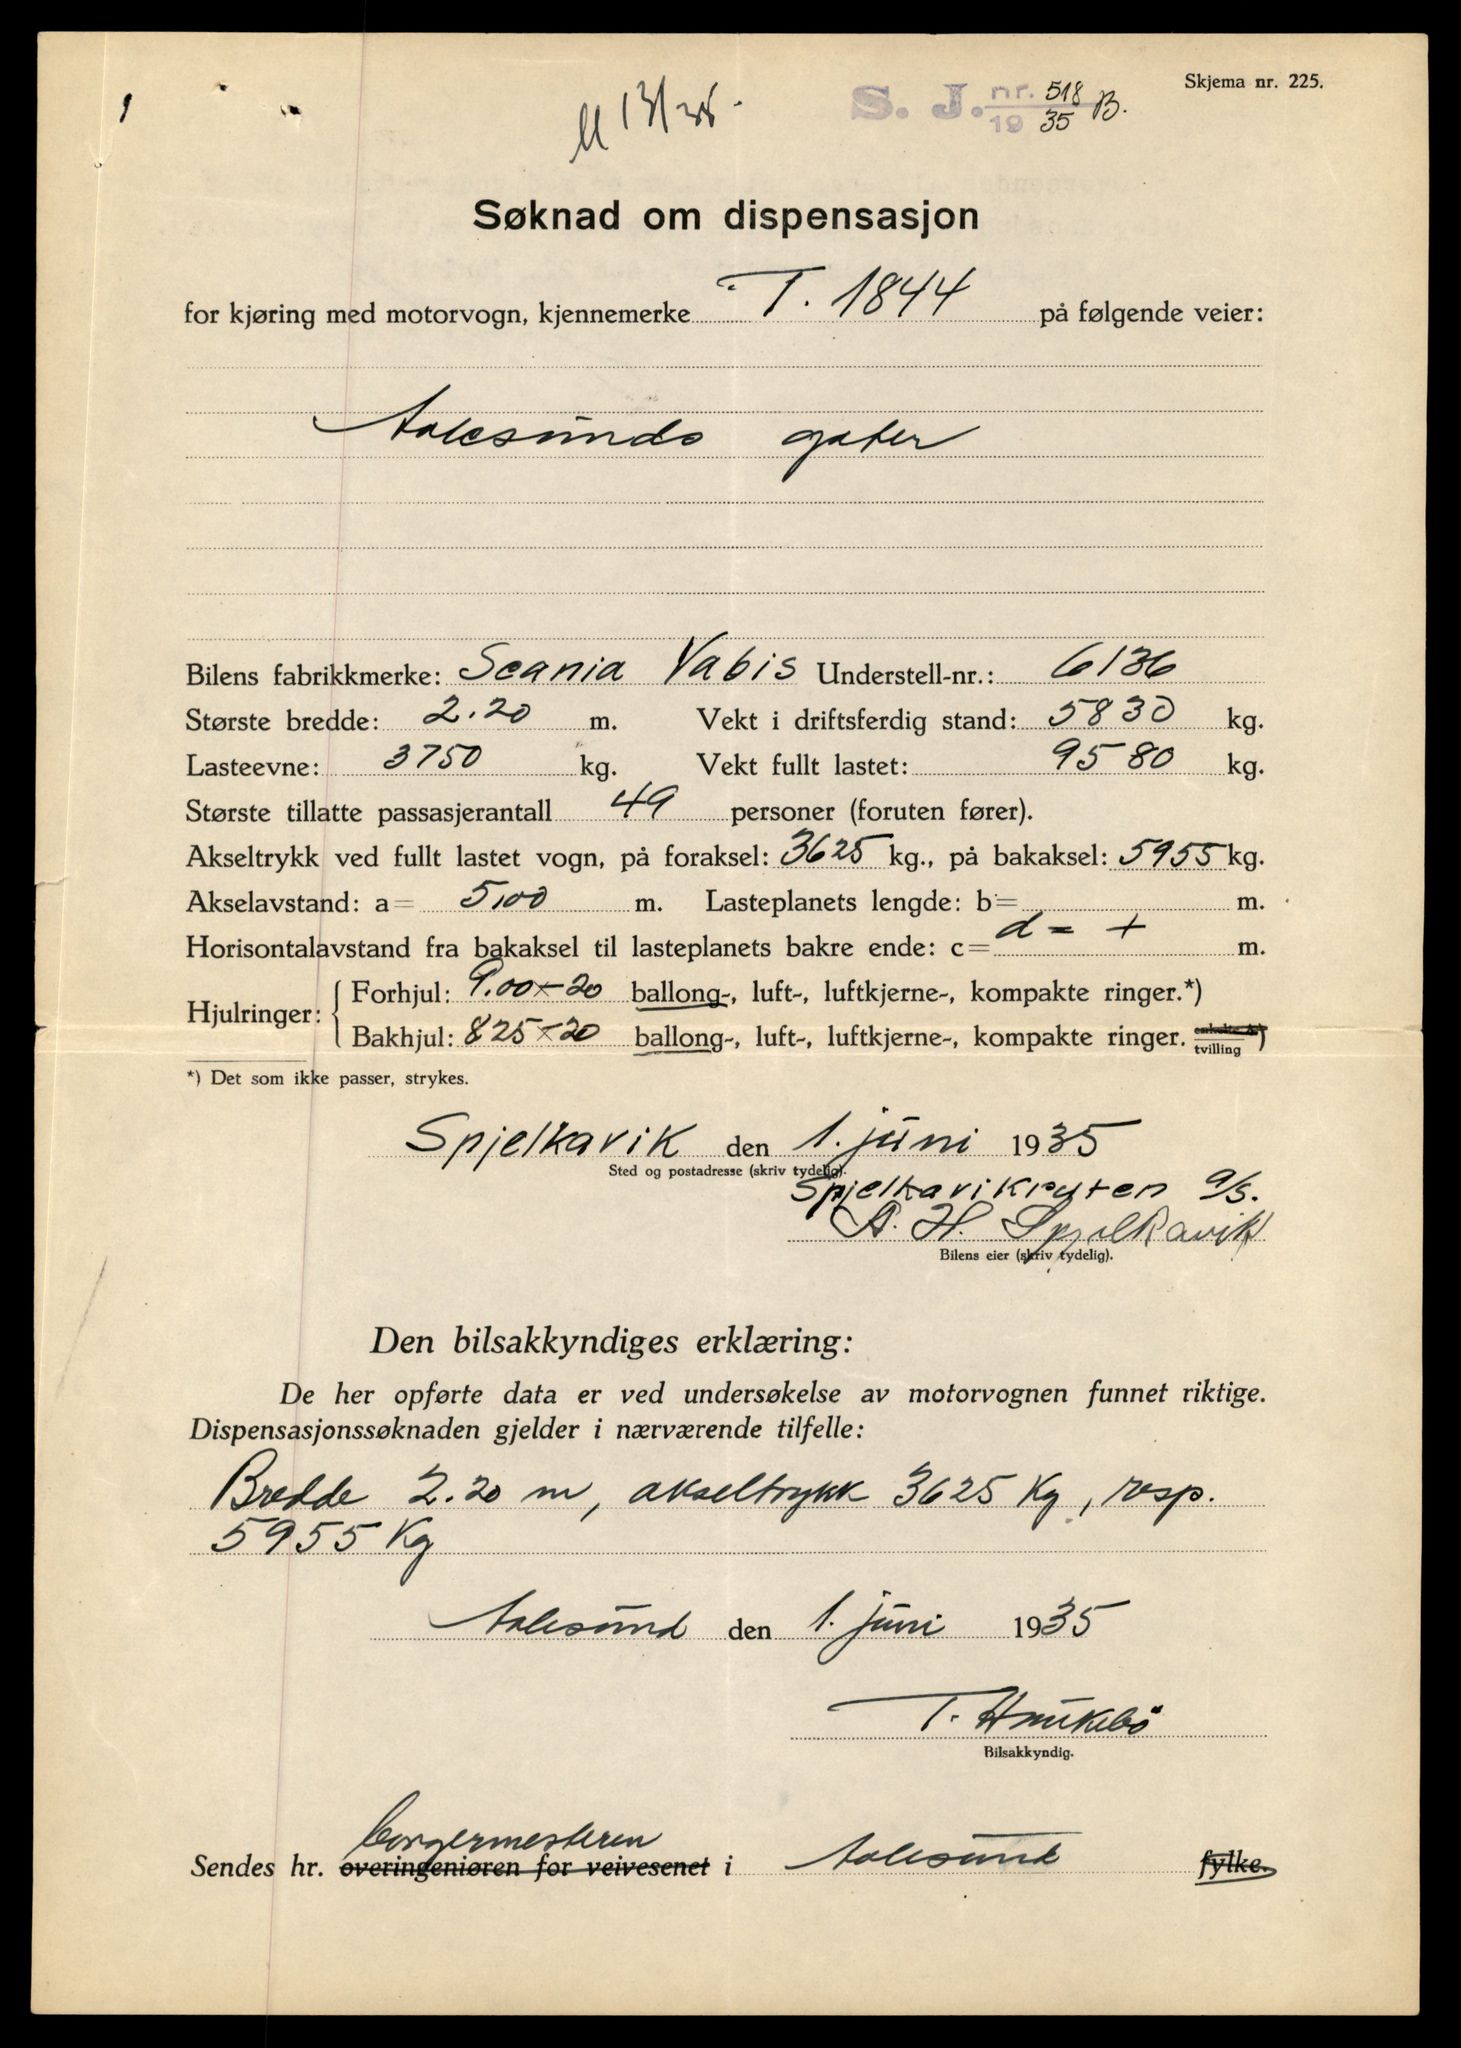 Skjema nr. 225.
S. J. nr. 518 B.
19 35
Søknad om dispensasjon
for kjøring med motorvogn, kjennemerke T. 1844 på følgende veier:
Aalesunds gater
Bilens fabrikkmerke: Scania Vabis Understell-nr.: 6136
Største bredde: 2.20 m. Vekt i driftsferdig stand: 5830 kg.
Lasteevne: 3750 kg. Vekt fullt lastet: 9580 kg.
Største tillatte passasjerantall 49 personer (foruten fører).
Akseltrykk ved fullt lastet vogn, på foraksel: 3625 kg., på bakaksel: 5955 kg.
Akselavstand: a= 5,00 m. Lasteplanets lengde: b= m.
Horisontalavstand fra bakaksel til lasteplanets bakre ende: c= d = + m.
Hjulringer: { Forhjul: 9.00×20 ballong-, luft-, luftkjerne-, kompakte ringer.*)
Bakhjul: 825×20 ballong-, luft-, luftkjerne-, kompakte ringer. tvilling *)
*) Det som ikke passer, strykes.
Spjelkavik den 1. juni 1935
Sted og postadresse (skriv tydelig).
Spjelkavikruten a/s.
A. H. Spjelkavik
Bilens eier (skriv tydelig).
Den bilsakkyndiges erklæring:
De her opførte data er ved undersøkelse av motorvognen funnet riktige.
Dispensasjonssøknaden gjelder i nærværende tilfelle:
Bredde 2.20 m, akseltrykk 3625 Kg, resp.
5955 Kg
Aalesund den 1. juni 1935
T. Haukebö
Bilsakkyndig.
borgermesteren
Sendes hr. overingeniøren for veivesenet i Aalesund fylke.